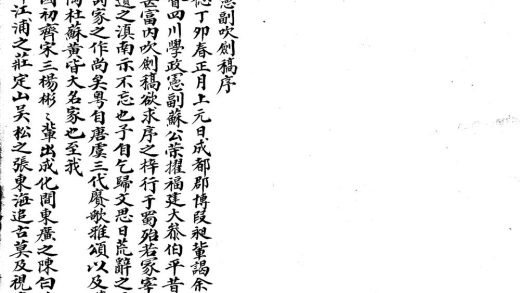 憲副吹劍稿序
德丁卯春正月上元日成都郡博段昶輩謁余
督四川學政憲副蘇公榮擢福建大叅伯平昔
甚富内吹劍稿欲求序之梓行于蜀殆若冢宰
遺之滇南示不忘也予自乞歸文思日荒辭之
詩家之作尚矣粤自唐虞三代賡歌雅頌以及
陶杜蘇黄皆大名家也至我
國初齊宋三楊彬〻輩出成化間東廣之陳白
江浦之莊定山吴松之張東海追古莫及視